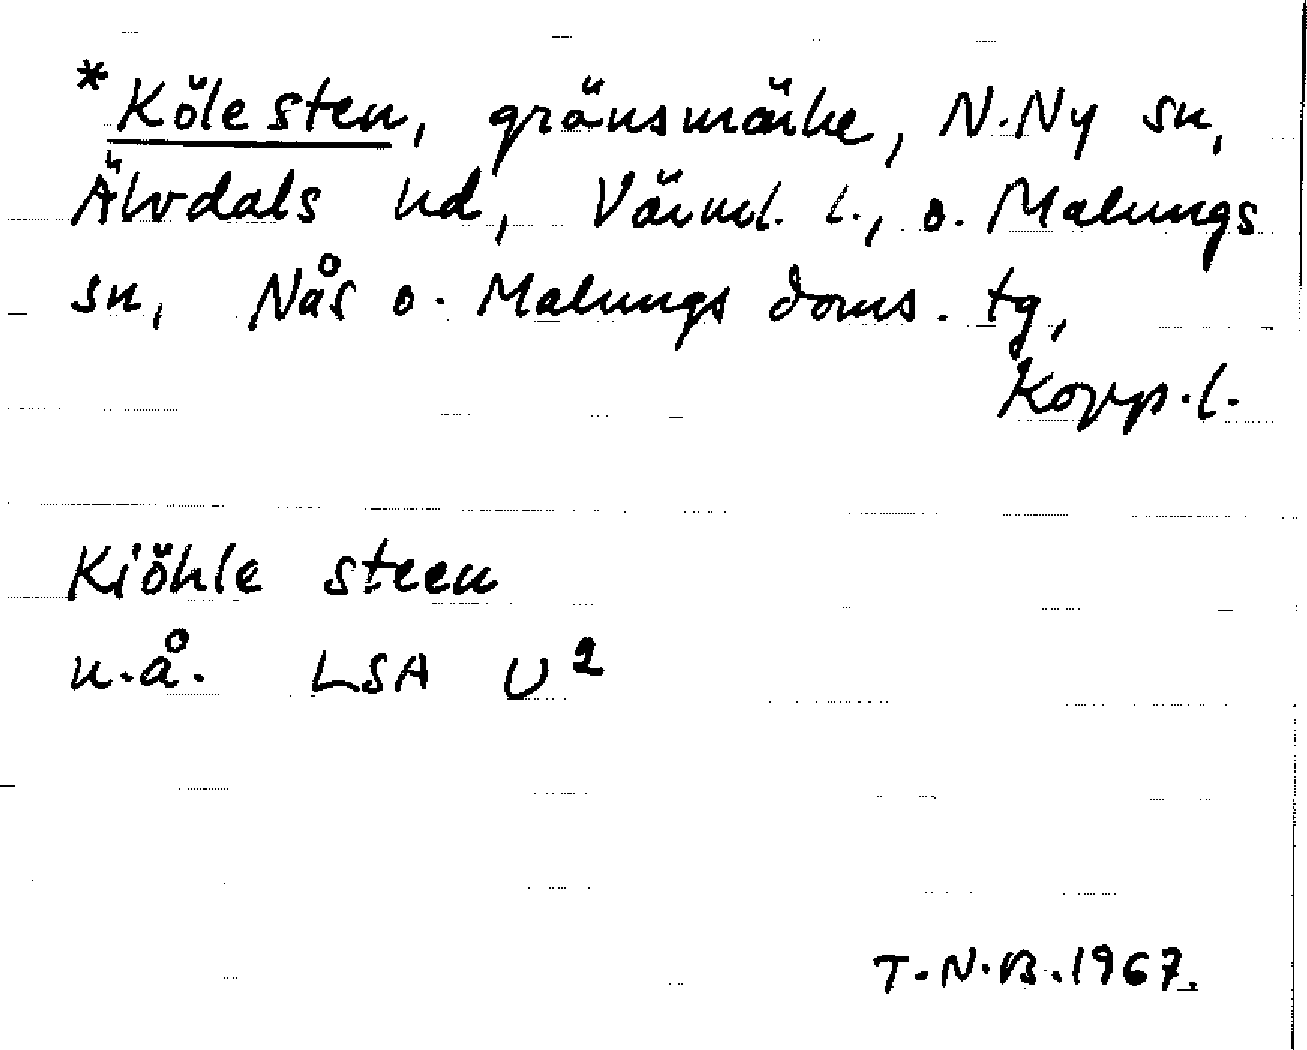 *Kölesten, gränsmärke, N.Ny sn,
Älvdals hd, Värml. l., o. Malungs
sn, Nås o. Malungs doms. tg,
Kopp. l.
Kiöhle steen
u.å. LSA U²
T.N.B. 1967.